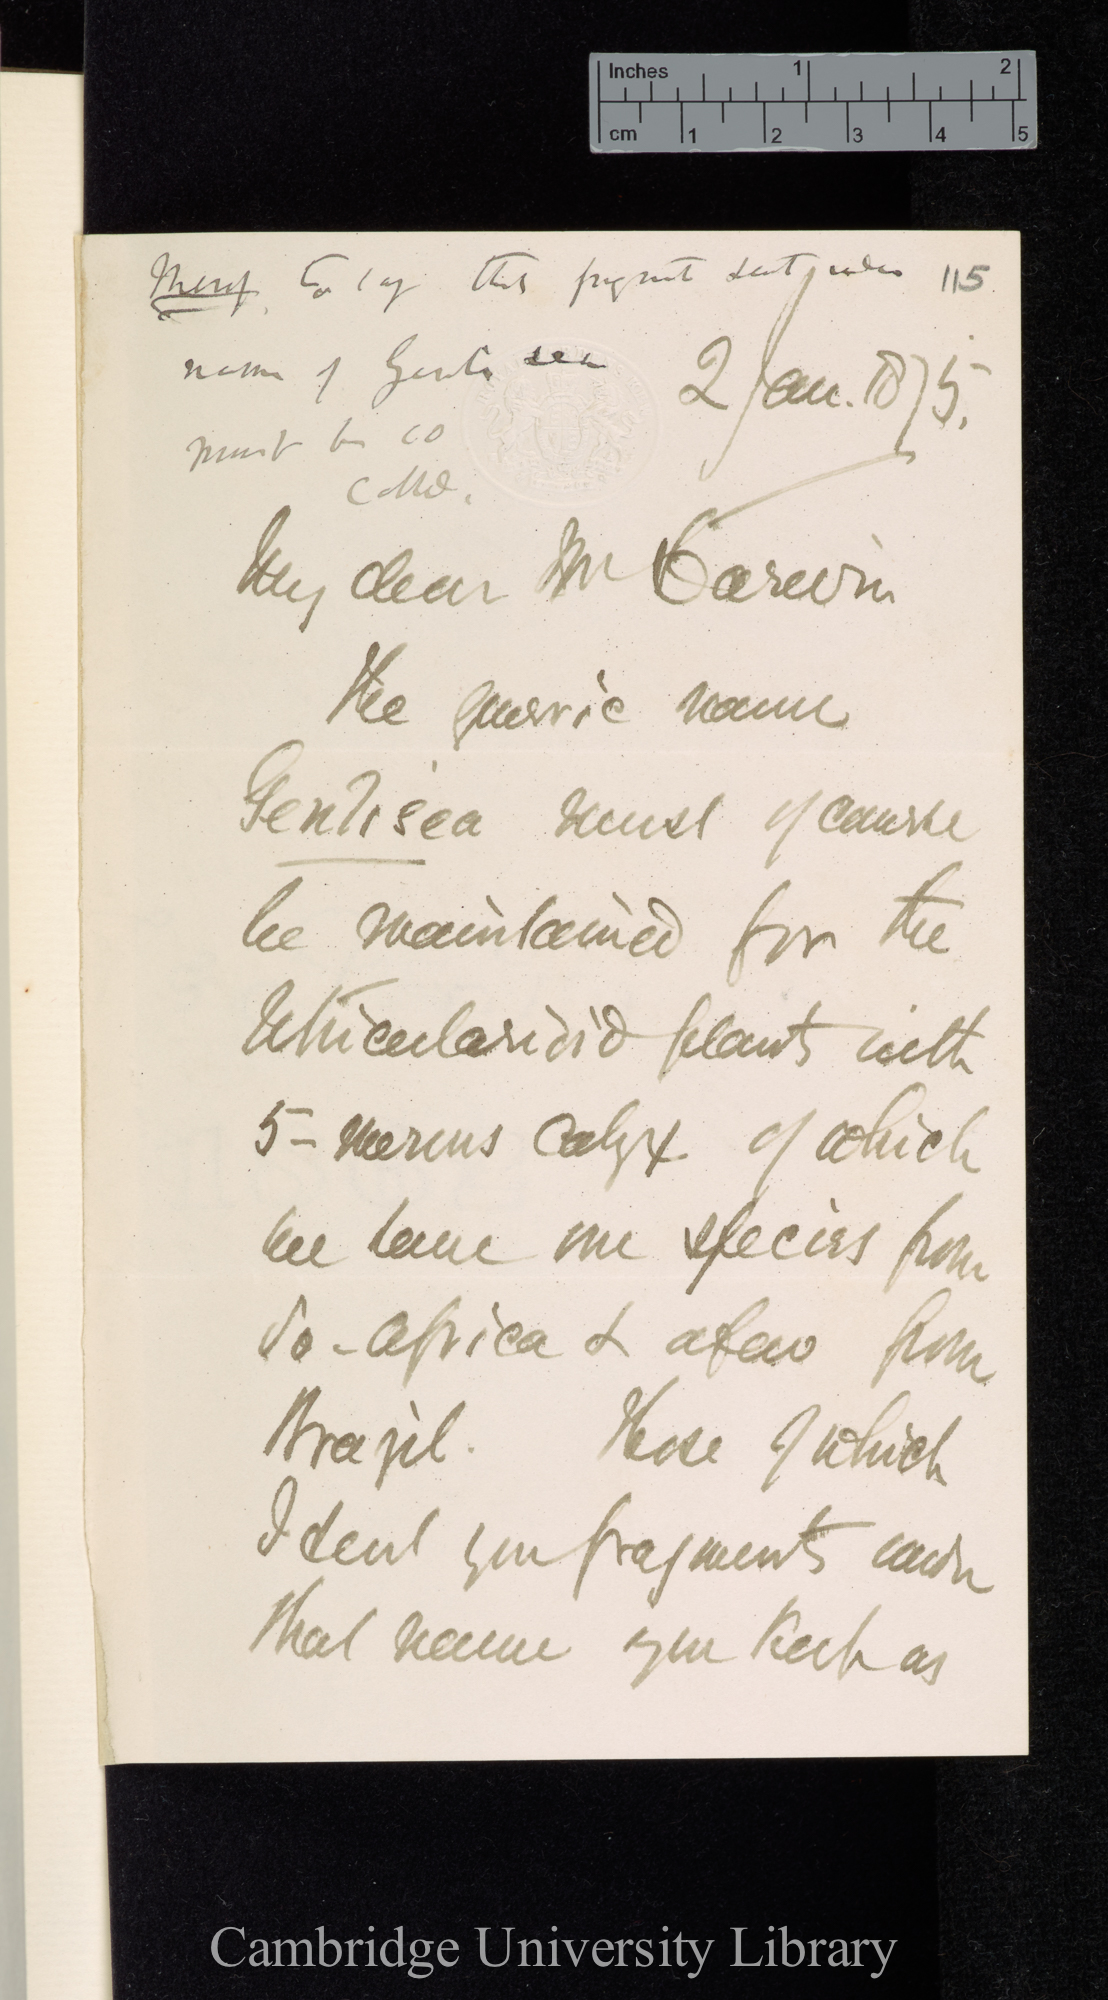 Inches 1 2
cm 1 2 3 4 5
Mem to say that fragment sent under
115
name of Genlisea
must be so
called.
2 Jan. 1875.
My dear Mr Darwin
The generic name
Genlisea must of course
be maintained for the
Utricularioid plants with
5-merous Calyx of which
we have one species from
So-Africa & a few from
Brazil. Those of which
I sent you fragments under
that name you kept as
Cambridge University Library